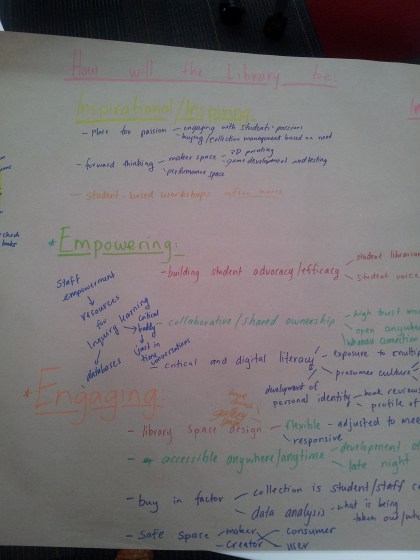 How will the Library be:
Inspirational/Inspiring
- Place for passion - engaging with students' passions
- buying/collection management based on need
- forward thinking - maker space - 3D printing
- game development and testing
- performance space
- Student-based workshops
* Empowering:
- building student advocacy/efficacy
student librarians
student voice
Staff
empowerment
resources
for
Inquiry learning
databases
critical
- collaborative/shared ownership
high trust
open
- critical and digital literacy
exposure to
prosumer culture
development of
personal identity
book reviews
profile of
* Engaging
- library space design - flexible - adjusted to
responsive
- accessible anywhere/anytime - development of
late night
- buy in factor - collection is student/staff
data analysis - what is being
taken out/
- Safe space - maker consumer
- creator user
check
books